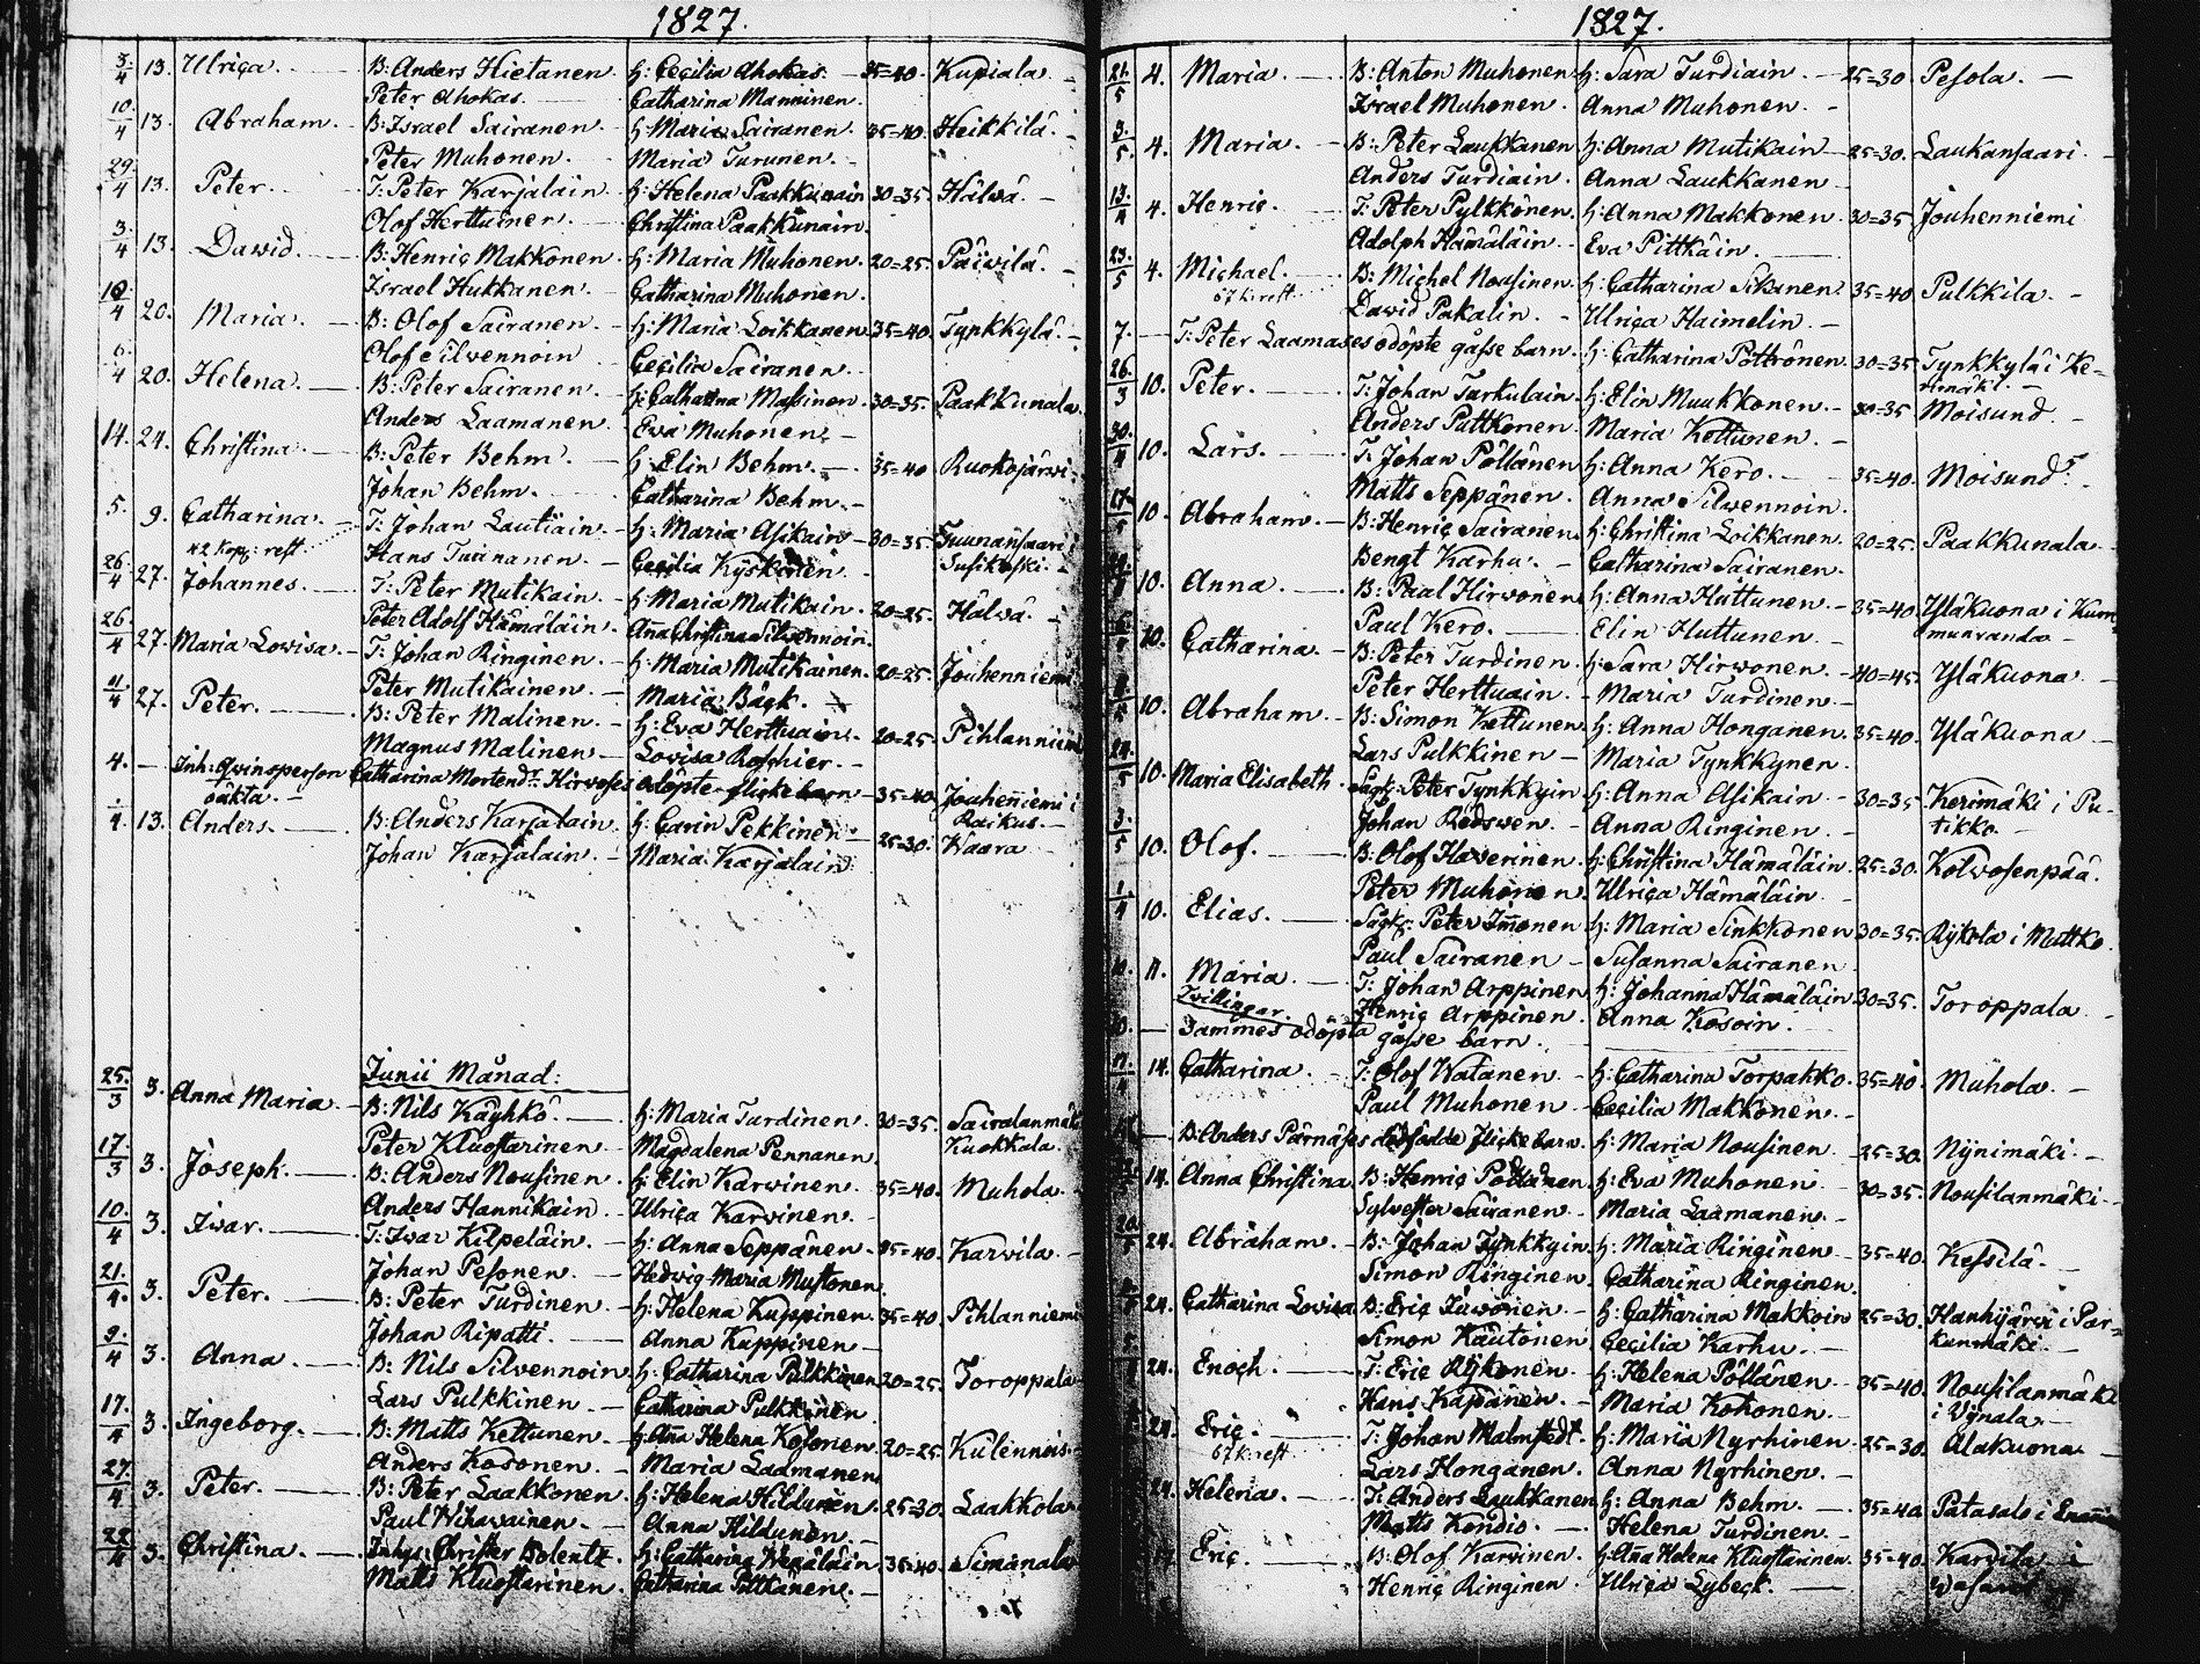 1827.
3/4 13. Ulrica. B: Anders Hietanen. H: Cecilia Ahokas. 35=40. Kupiala.
Peter Ahokas. Catharina Manninen.
10/4 13. Abraham. B: Israel Sairanen. H: Maria Sairanen. 35=40. Heikkilä.
Peter Muhonen. Maria Turunen.
29/4 13. Peter. T: Peter Karjalain H: Helena Paakkunain 30=35. Hälwä.
Olof Herttuinen. Christina Paakkunain.
3/4 13. Dawid. B: Henric Makkonen. H: Maria Muhonen. 20=25. Päiwilä.
Israel Hukkanen. Catharina Muhonen.
10/4 20. Maria. B: Olof Sairanen. H: Maria Loikkanen 35=40. Tynkkylä.
Olof Silwennoin Cecilia Sairanen.
6/4 20. Helena. B: Peter Sairanen. H: Catharina Masinen. 30=35. Paakkunala.
Anders Laamanen. Eva Muhonen.
14. 24. Christina. B: Peter Behm. H: Elin Behm. 35=40 Ruokojärwi.
Johan Behm. Catharina Behm.
5. 9. Catharina. T: Johan Lautiain. H: Maria Asikain 30=35. Tuunansaari
42 Kop: rest. Hans Tuunanen. Cecilia Kyskinen Susikoski.
26/4 27. Johannes. T: Peter Mutikain. H: Maria Mutikain. 20=25. Hälwä.
Peter Adolf Hämäläin. Aña Christina Silwennoin.
26/4 27. Maria Lowisa. T: Johan Ringinen. H: Maria Mutikainen. 20=25. Jouhenniemi
Peter Mutikainen. Maria Bäck.
11/4 27. Peter. B: Peter Malinen. H: Eva Herttuain. 20=25. Pihlanniemi
Magnus Malinen Lovisa Roschier.
4. Inh: Qwinsperson Catharina Mortensdr: Hirwoses odöpte flicke barn 35=40 Jouheñiemi i
oäkta. Raikus.
1/4. 13. Anders. B: Anders Karjalain. H: Carin Pekkinen 25=30. Waara
Johan Karjalain. Maria Karjalain.
Junii Månad:
25/3 3. Anna Maria. B: Nils Käyhkö. H: Maria Turdinen. 30=35. Sairalanmäki
Peter Kluostarinen Magdalena Pennanen. Kuokkala.
17/3 3. Joseph. B: Anders Nousinen. H: Elin Karwinen. 35=40. Muhola.
Anders Hannikain. Ulrica Karvinen.
10/4 3. Iwar. T: Iwar Kilpeläin. H: Anna Seppänen. 35=40. Karvila.
Johan Pesonen. Hedwig Maria Mustonen.
21/4. 3. Peter. B: Peter Turdinen. H: Helena Kuppinen. 35=40. Pihlanniemi
Johan Ripatti. Anna Kuppinen
9/4 3. Anna. B: Nils Silvennoin H: Catharina Pulkkinen 20=25. Toroppala
Lars Pulkkinen Catharina Pulkkinen
17/4 3. Ingeborg. B: Matts Kettunen H: Aña Helena Kosonen. 20=25. Kulennois.
Anders Kosonen. Maria Laamanen.
27/4 3. Peter. B: Peter Laakkonen. H: Helena Hildunen. 25=30. Laakkola
Paul Wihavainen. Anna Hildunen.
22/4 3. Christina. Inhys: Christer Bolentz. H: Catharina 35=40. Simanala
Matts Kluostarinen. Catharina
1827.
21/5 4. Maria. B: Anton Muhonen H: Sara Turdiain. 25=30. Pesola.
Israel Muhonen. Anna Muhonen.
3/5. 4. Maria. B: Peter Laukkanen H: Anna Mutikain 25=30. Laukansaari.
Anders Turdiain. Anna Laukkanen
13/4 4. Henric. T: Peter Pylkkönen. H: Anna Makkonen. 30=35. Jouhenniemi
Adolph Hämäläin. Eva Pittkäin.
23/5 4. Michael. B: Michel Nousinen. H: Catharina Sikanen. 35=40. Pulkkila.
67 k: rest. Dawid Pakalin. Ulrica Haimelin.
7. T: Peter Laamases odöpte gåsse barn. H: Catharina Pöttrönen. 30=35. Tynkkylä i Ke=
rimäki.
26/3 10. Peter. T: Johan Turkulain. H: Elin Muukkonen. 30=35 Moisund.
Anders Puttkonen. Maria Kettunen.
30/4 10. Lars. T: Johan Pöllänen H: Anna Kero. 35=40. Moisund.
Matts Seppänen. Anna Silwennoin.
17/5 10. Abraham. B: Henric Sairanen. H: Christina Loikkanen. 20=25. Paakkunala.
Bengt Karhu. Catharina Sairanen.
10. Anna. B: Paul Hirvonen H: Anna Huttunen. 35=40. Yläkuona i Kum
Paul Kero. Elin Huttunen munranda
10. Catharina. B: Peter Turdinen. H: Sara Hirwonen. 40=45. Yläkuona
Peter Herttuain. Maria Turdinen.
10. Abraham. B: Simon Kettunen H: Anna Honganen. 35=40. Yläkuona
Lars Pulkkinen Maria Tynkkynen.
24/5 10. Maria Elisabeth. Sågk: Peter Tynkkyin H: Anna Asikain. 30=35 Kerimäki i Pu=
Johan Rödswen. Anna Ringinen. tikko.
3/5 10. Olof. B: Olof Haverinen. H: Christina Hämäläin. 25=30. Kolwosenpää.
Peter Muhonen. Ulrica Hämäläin
1/4 10. Elias. Sågk: Peter Im̃onen H: Maria Sinkkonen 30=35. Rykola i Mattko
Paul Sairanen Susanna Sairanen
10. 11. Maria. T: Johan Arppinen H: Johanna Hämäläin 30=35. Toroppala
Tvillingar. Henric Arppinen. Anna Kosoin.
10. Sammes odöpta gåsse barn.
17/4 14. Catharina. T: Olof Watanen. H: Catharina Torpakko. 35=40. Muhola.
Paul Muhonen Cecilia Makkonen.
B: Anders Pärnäses dödfödde flicke barn. H: Maria Nousinen. 25=30. Nynimäki.
14. Anna Christina. B: Henric Pöllänen. H: Eva Muhonen 30=35. Nousilanmäki
Sylvester Sairanen. Maria Laamanen.
20/5 24. Abraham. B: Johan Tynkkyin. H: Maria Ringinen 35=40. Kessilä.
Simon Ringinen. Catharina Ringinen.
24. Catharina Lovisa B: Eric Juvonen. H: Catharina Makkoin 25=30. Hanhijärvi i Par=
Simon Kautonen Cecilia Karhu. kunmäki.
24. Enoch. T: Eric Rykonen. H: Helena Pöllänen 35=40. Nousilanmäki
Hans Kapanen. Maria Kohonen. i Wynala.
24. Eric. T: Johan Malmstedt. H: Maria Nyrhinen 25=30. Alakuona
67 k: rest. Lars Honganen. Anna Nyrhinen.
24. Helena. T: Anders Laukkanen H: Anna Behm. 35=40 Patasalo i
Matts Kondio. Helena Turdinen.
Eric. B: Olof Karvinen. H: Aña Helena Kluostarinen. 35=40. Karvila i
Henric Ringinen. Ulrica Lybeck.